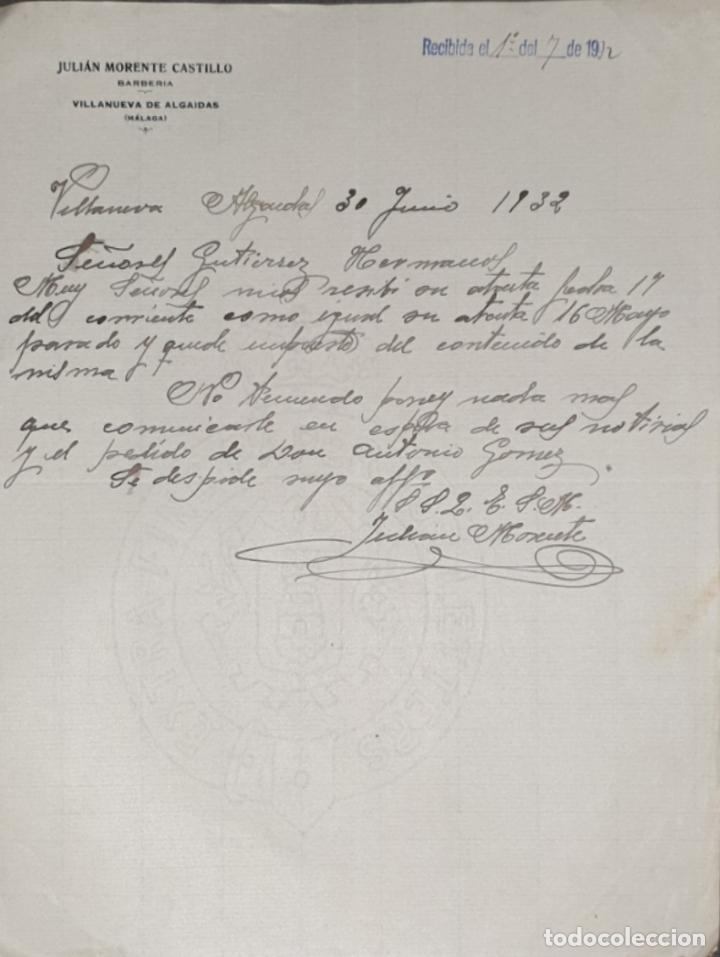 Recibida el 1º del 7 de 1932
JULIÁN MORENTE CASTILLO
BARBERIA
VILLANUEVA DE ALGAIDAS
(MÁLAGA)
Villanueva Algaidas 30 Junio 1932
Señores Gutierrez Hermanos
Muy Señores mios resibí su atenta fecha 17
del corriente como igual su atenta 16 Mayo
pasado y quede impuesto del contenido de la
misma
No teniendo poney nada mas
que comunicarle en espera de sus notisias
y el pedido de Don Antonio Gomez
Se despide suyo affº
S. S. Q. E. S. M.
Julian Morente
EXTRA
todocoleccion
todocoleccion.net